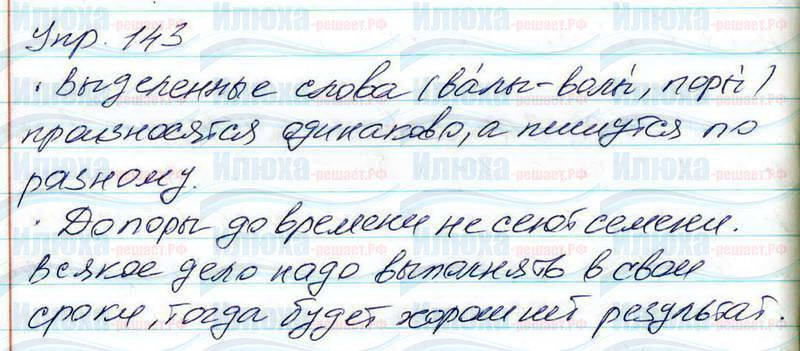 Упр. 143
• Выделенные слова (ва́лы - валы́, поры́)
произносятся одинаково, а пишутся по
разному.
• До поры до времени не сеют семени.
Всякое дело надо выполнять в свои
сроки, тогда будет хороший результат.